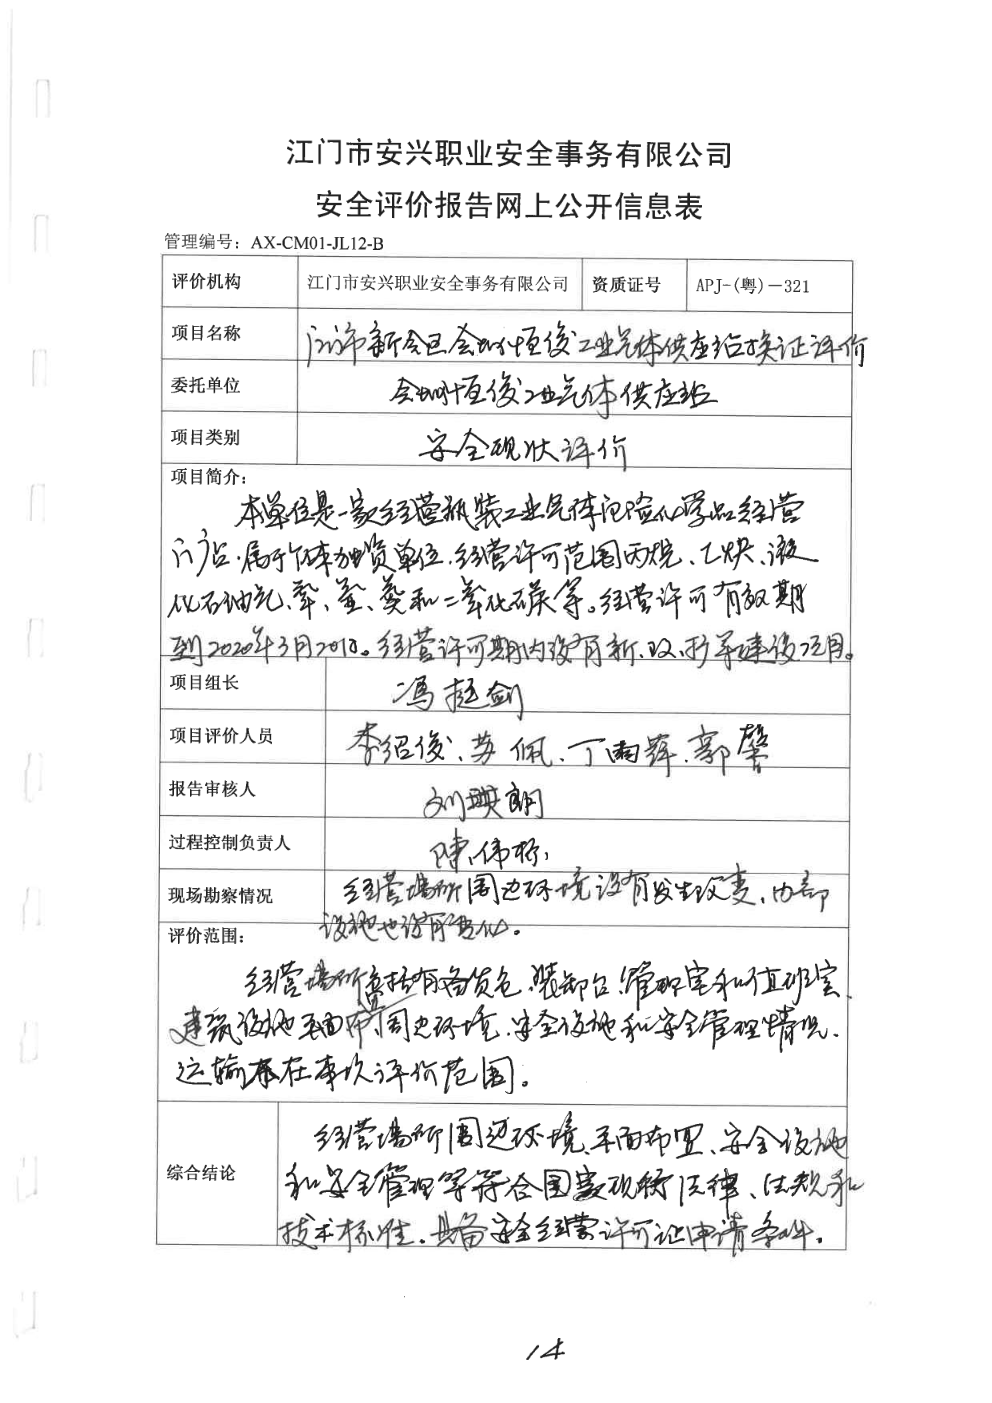 江门市安兴职业安全事务有限公司
安全评价报告网上公开信息表
管理编号：AX-CM01-JL12-B
评价机构 江门市安兴职业安全事务有限公司 资质证号 APJ-(粤)-321
项目名称 江门市新会区会城恒俊工业气体供应站换证评价
委托单位 会城恒俊工业气体供应站
项目类别 安全现状评价
项目简介：
本单位是一家经营瓶装工业气体危险化学品经营
门店.属于个体独资单位.经营许可范围丙烷、乙炔、液
化石油气、氧、氩、氮和二氧化碳等。经营许可有效期
到2020年3月20日。经营许可期内没有新、改、扩等建设项目。
项目组长 冯挺剑
项目评价人员 李绍俊、苏佩、丁雨辉、郭馨
报告审核人 刘映朗
过程控制负责人 陈伟标
现场勘察情况 经营场所周边环境没有发生改变、内部
设施也没有变化。
评价范围：
经营场所包括有备货仓、装卸台、管理室和值班室、
建筑设施、平面布置、周边环境、安全设施和安全管理情况.
运输不在本次评价范围。
综合结论 经营场所周边环境、平面布置、安全设施
和安全管理等符合国家现行法律、法规和
技术标准.具备安全经营许可证申请条件。
14